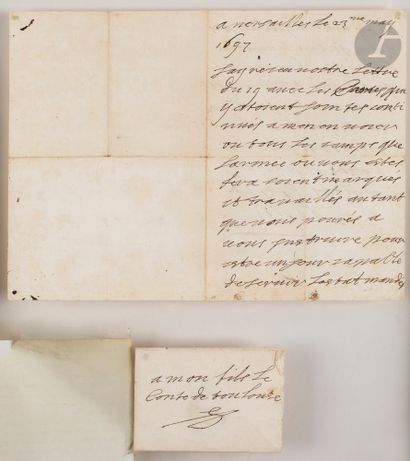 a versailles le 23me may
1697
Jay receu vostre lettre
du 19 avec les cartes qui
y estoient jointes conti
nués a men envoier
ou tous les camps que
larmee ou vous estes
fera soient marqués
et travaillés autant
que vous pourés a
vous instruire pour
estre un jour capable
de servir lestat mandés
a mon fils le
Conte de toulouse